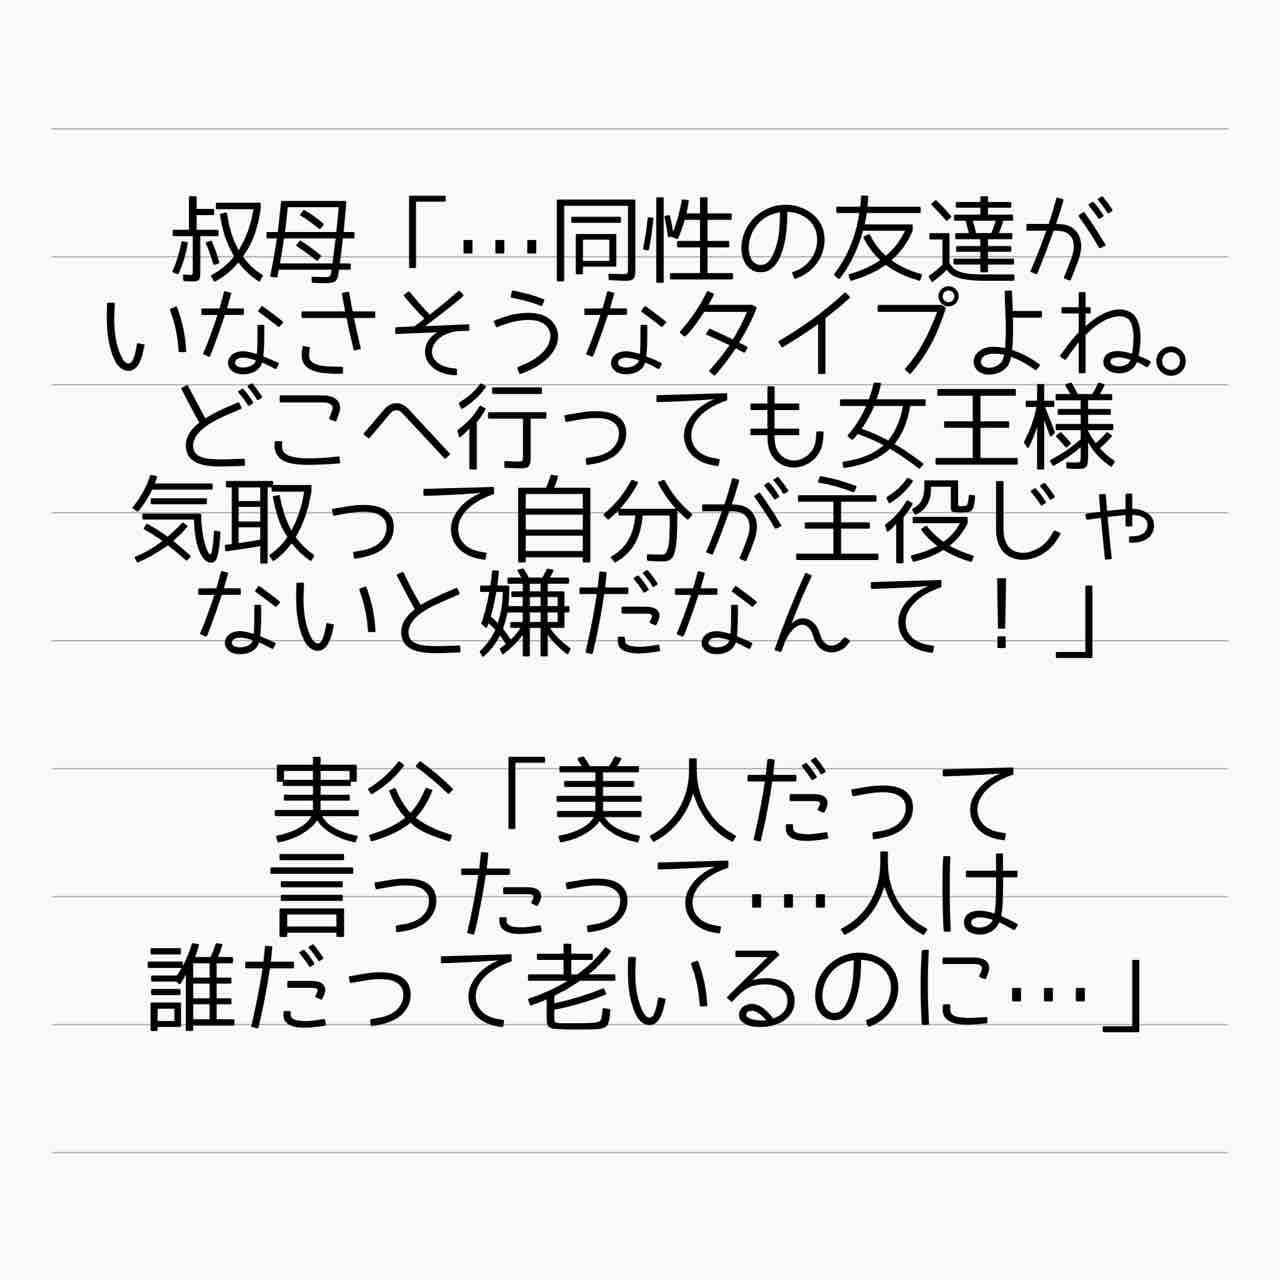 叔母「…同性の友達が
いなさそうなタイプよね。
どこへ行っても女王様
気取って自分が主役じゃ
ないと嫌だなんて！」
実父「美人だって
言ったって…人は
誰だって老いるのに…」